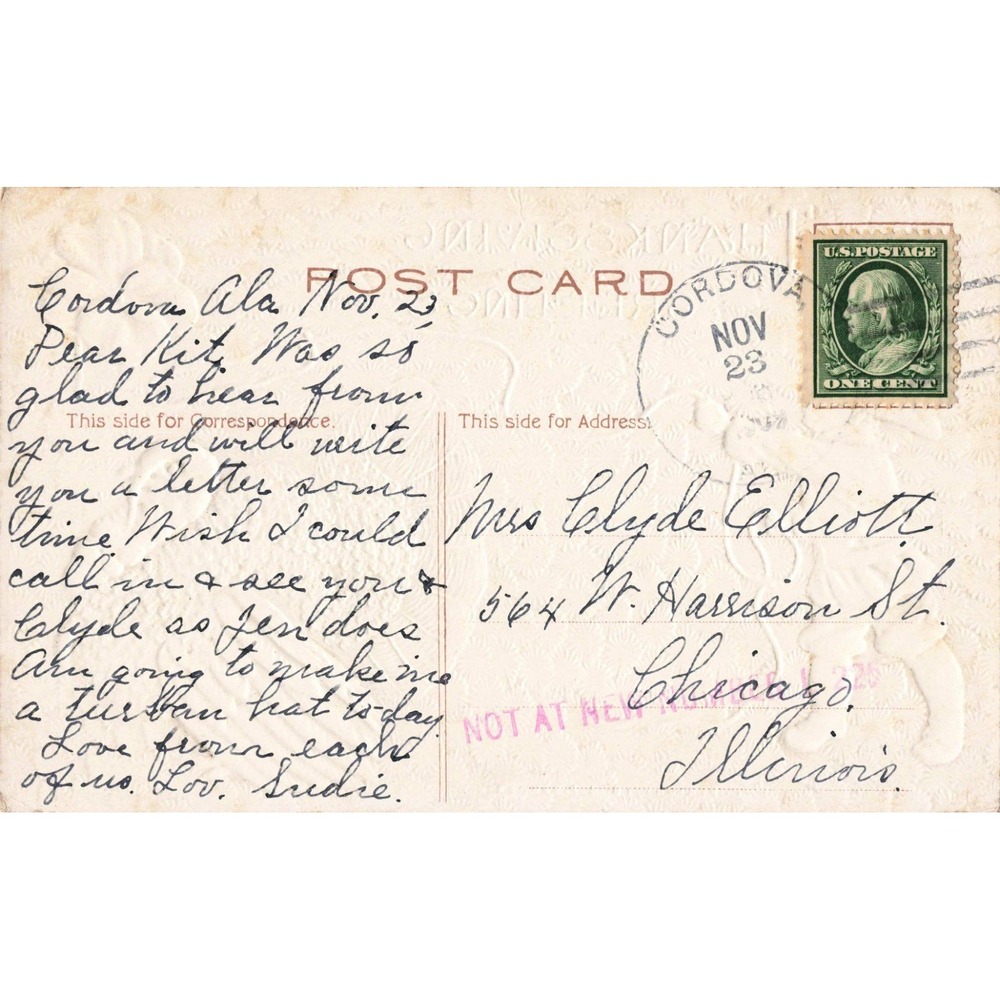 THANKSGIVING
POST CARD
Cordova Ala Nov. 23,
Dear Kit, Was so
glad to hear from
This side for Correspondence.
you and will write
you a letter some
time. Wish I could
call in & see you &
Clyde as Jen does
Am going to make me
a turban hat to-day
Love from each
of us. Lov. Sudie.
CORDOVA,
NOV
23
U.S. POSTAGE
ONE CENT
This side for Address.
Mrs Clyde Elliott.
564 W. Harrison St.
Chicago.
NOT AT NEW NUMBER
Illinois.